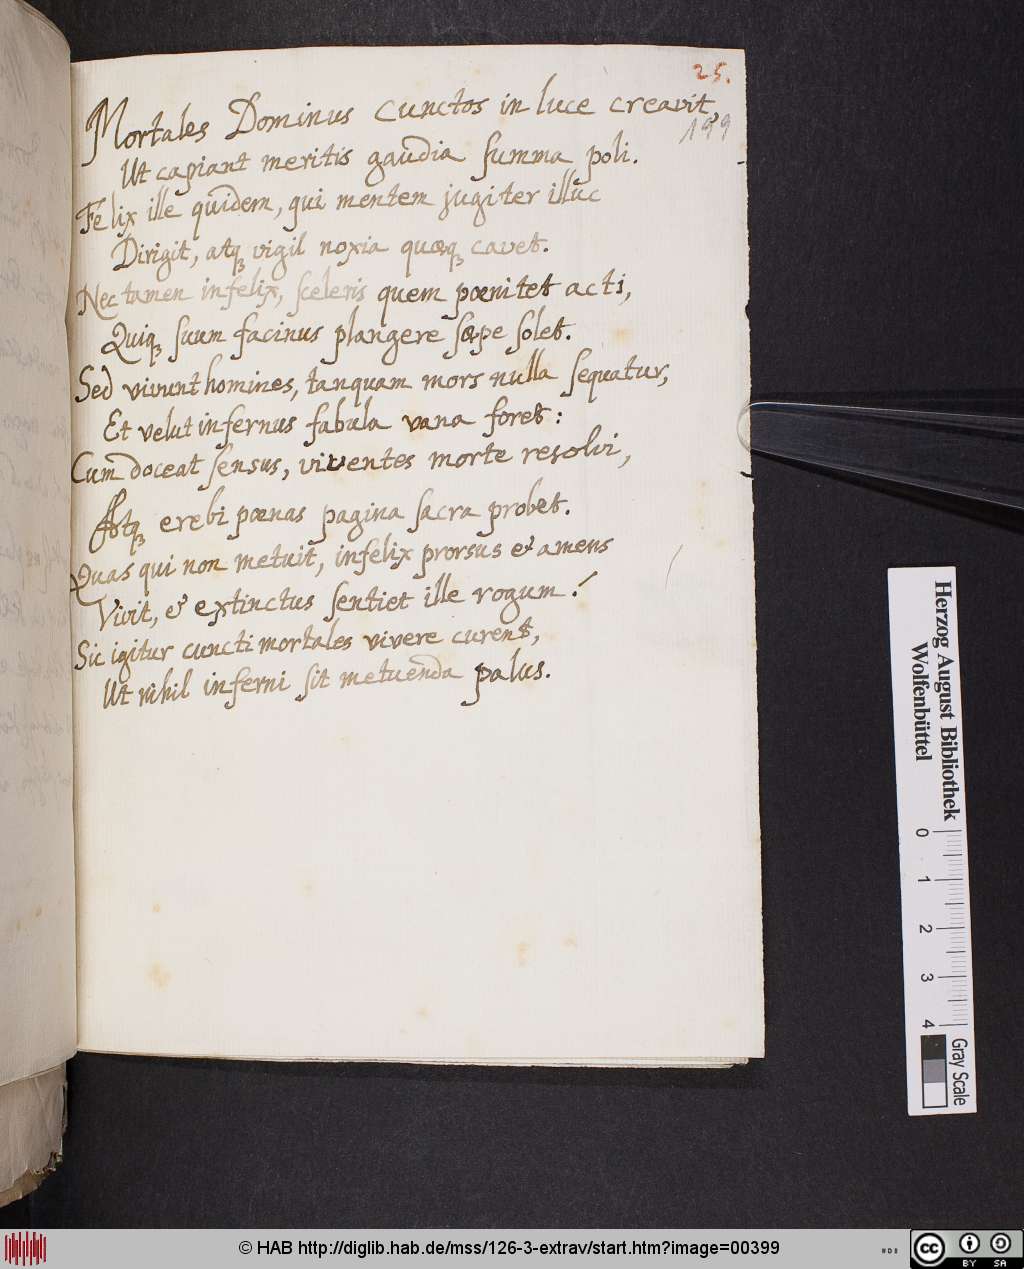 25.
Mortales Dominus cunctos in luce creavit,
199
Ut capiant meritis gaudia summa poli.
Felix ille quidem, qui mentem jugiter illuc
Dirigit, atqꝫ vigil noxia quæqꝫ cavet.
Nec tamen infelix, sceleris quem pœnitet acti,
Quiqꝫ suum facinus plangere sæpe solet.
Sed vivunt homines, tanquam mors nulla sequatur,
Et velut infernus fabula vana foret:
Cum doceat sensus, viventes morte resolvi,
Atqꝫ erebi pœnas pagina sacra probet.
Quas qui non metuit, infelix prorsus & amens
Vivit, & extinctus sentiet ille rogum!
Sic igitur cuncti mortales vivere curent,
Ut nihil inferni sit metuenda palus.
Herzog August Bibliothek
Wolfenbüttel
0 1 2 3 4
Gray Scale
© HAB http://diglib.hab.de/mss/126-3-extrav/start.htm?image=00399
cc BY SA